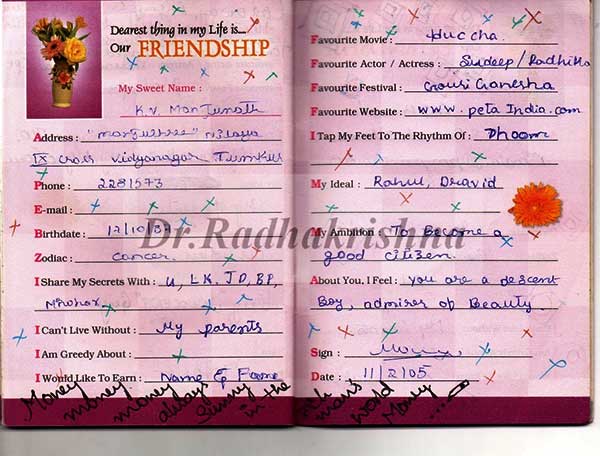 Dearest thing in my Life is....
Our FRIENDSHIP
My Sweet Name :
K.V. Manjunath
Address : "manjushree" nilaya
IX cross vidyanagar Tumkur
Phone : 2281573
E-mail :
Birthdate : 12/10/84
Zodiac : cancer
I Share My Secrets With : U, L.K, J.D, B.P,
Manohar
I Can't Live Without : My parents
I Am Greedy About :
I Would Like To Earn : Name & Fame
Money money money always Sunny in the
Favourite Movie : Huccha
Favourite Actor / Actress : Sudeep / Radhika
Favourite Festival : Gowri Ganesha
Favourite Website : www.peta India.com
I Tap My Feet To The Rhythm Of : Dhoom
My Ideal : Rahul, Dravid
My Ambition : To Become a
good citizen.
About You, I Feel : you are a descent
Boy, admirer of Beauty.
Sign :
Date : 11/2/05
rich man's world Money....
Dr.Radhakrishna